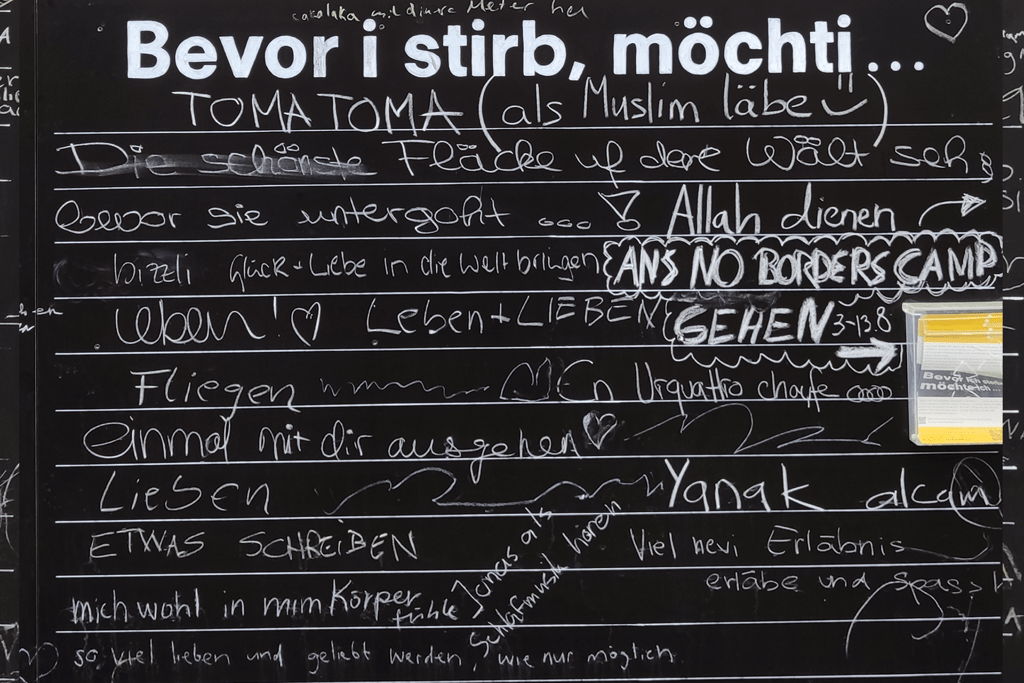 Bevor i stirb, möchti...
TOMA TOMA (als Muslim läbe)
Die schönste Fläcke uf dere Wält seh
bevor sie untergoht ... Allah dienen
bizzli Glück + Liebe in die Welt bringen ANS NO BORDERS CAMP
leben! Leben + LIEBEN GEHEN 3-13.8
Fliegen En Urquattro chaufe
einmal mit dir ausgehen
Lieben Yanak alcam
ETWAS SCHREIBEN Viel nevi Erläbnis
erläbe und Spass
mich wohl in mim Körper fühle
Jonas als
Schlafmusik hören
so viel lieben und geliebt werden, wie nur möglich